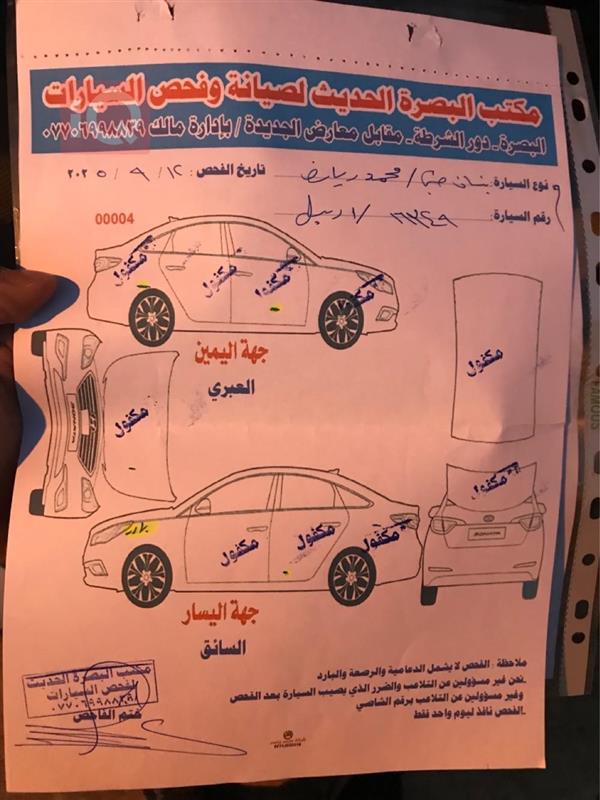 مكتب البصرة الحديث لصيانة وفحص السيارات
البصرة - دور الشرطة - مقابل معارض الجديدة / بإدارة مالك ٠٧٧٠٦٩٩٨٨٣٩
نوع السيارة: تاريخ الفحص: ١٢ / ٩ / ٢٠٢٥
رقم السيارة: اربيل
00004
مكفول
مكفول
مكفول
مكفول
جهة اليمين
العبري
مكفول
مكفول
مكفول
بارد
مكفول
مكفول
مكفول
جهة اليسار
السائق
مكتب البصرة الحديث
لفحص السيارات
٠٧٧٠٦٩٩٨٨٣٩
ختم الفاحص
ملاحظة : الفحص لا يشمل الدعامية والرصعة والبارد
نحن غير مسؤولين عن التلاعب والضرر الذي يصيب السيارة بعد الفحص.
وغير مسؤولين عن التلاعب برقم الشاصي
الفحص نافذ ليوم واحد فقط.
HYUNDAI
FAMOUS